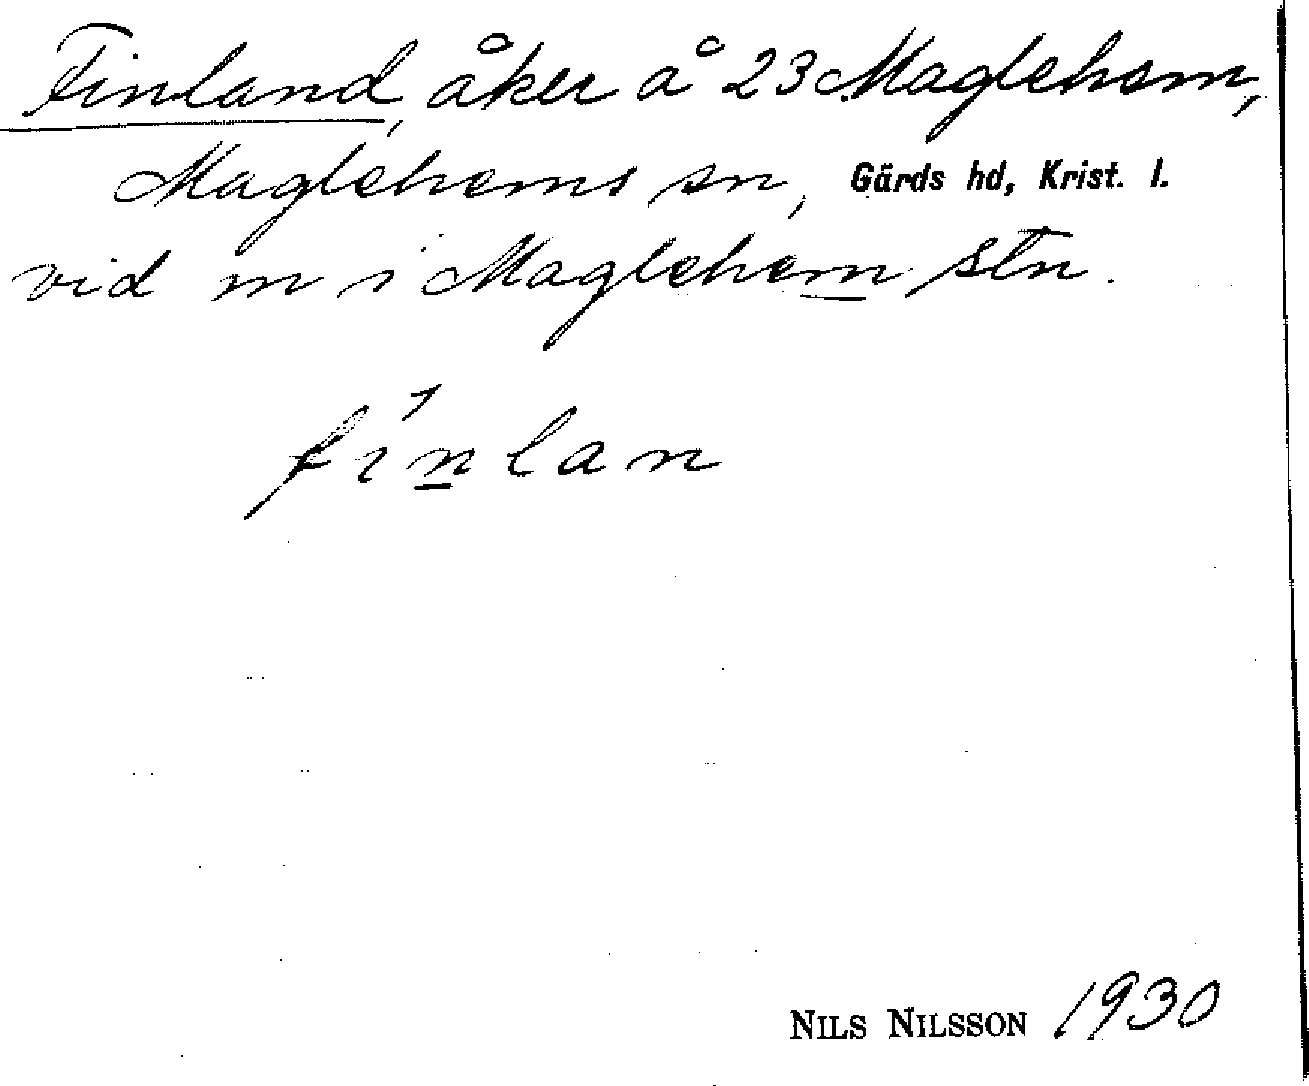 Finland, åker å 23 Maglehem,
Maglehems sn, Gärds hd, Krist. l.
vid m i Maglehem stn.
finlan
NILS NILSSON 1930